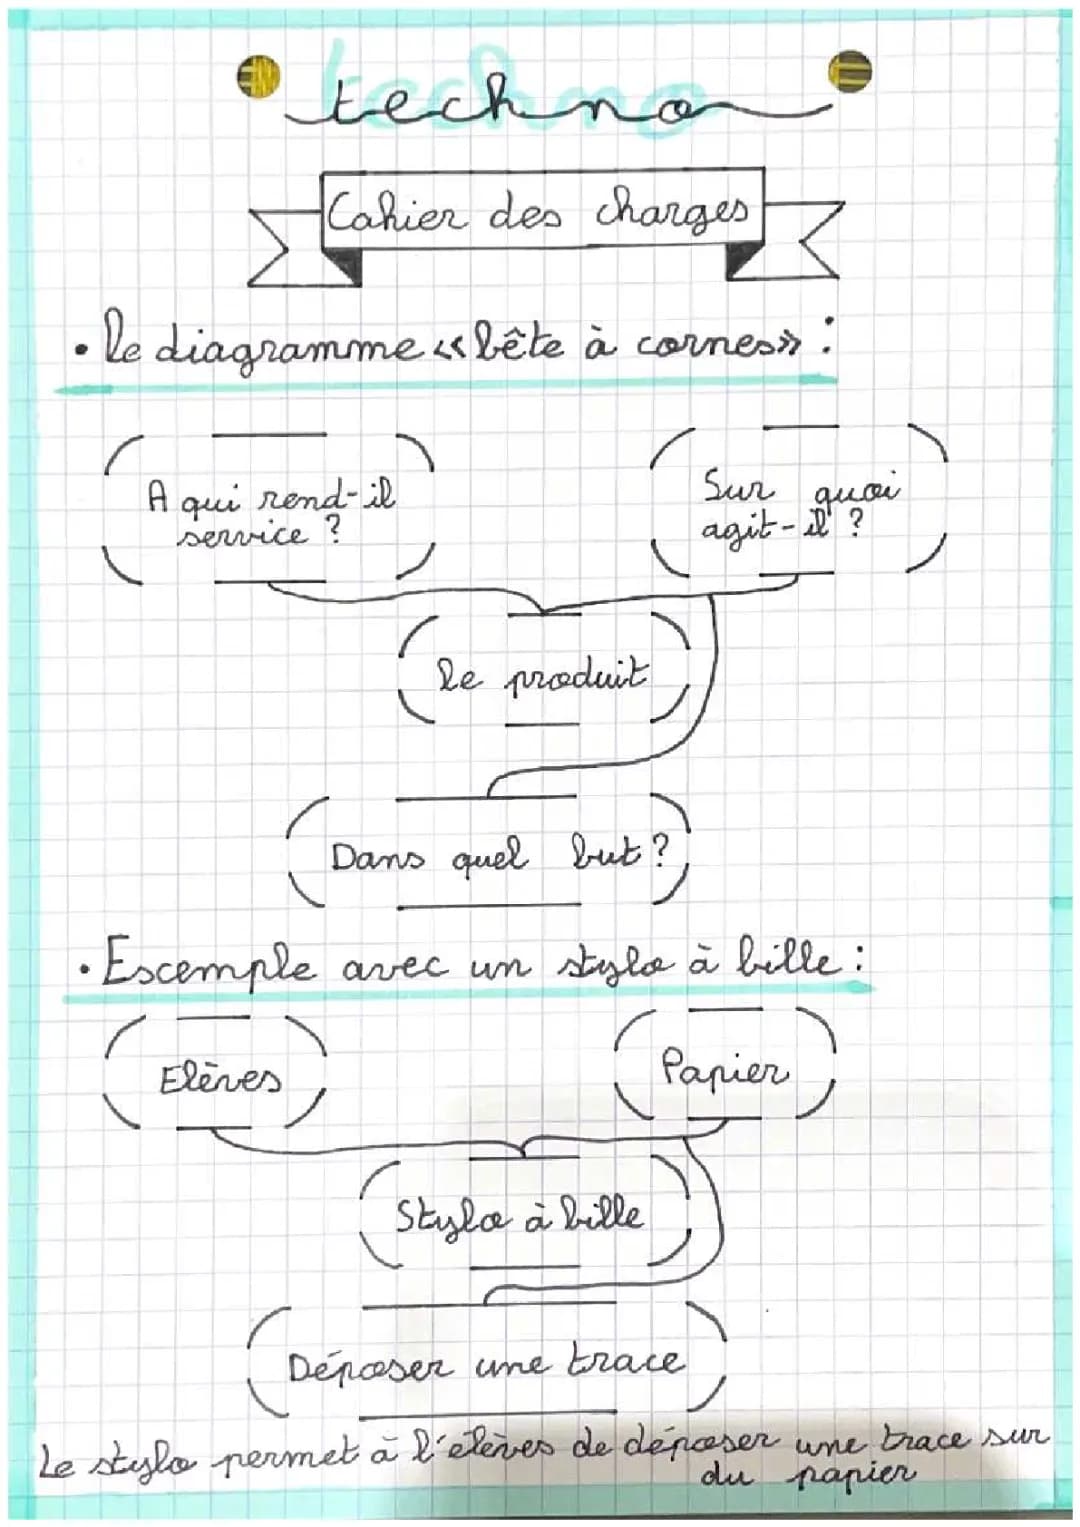 techno
Cahier des charges
• Le diagramme « bête à cornes » :
A qui rend-il
service ?
Sur quoi
agit-il ?
Le produit
Dans quel but ?
• Escemple avec un stylo à bille :
Elèves
Papier
Stylo à bille
Déposer une trace
Le stylo permet à l'élèves de déposer une trace sur
du papier